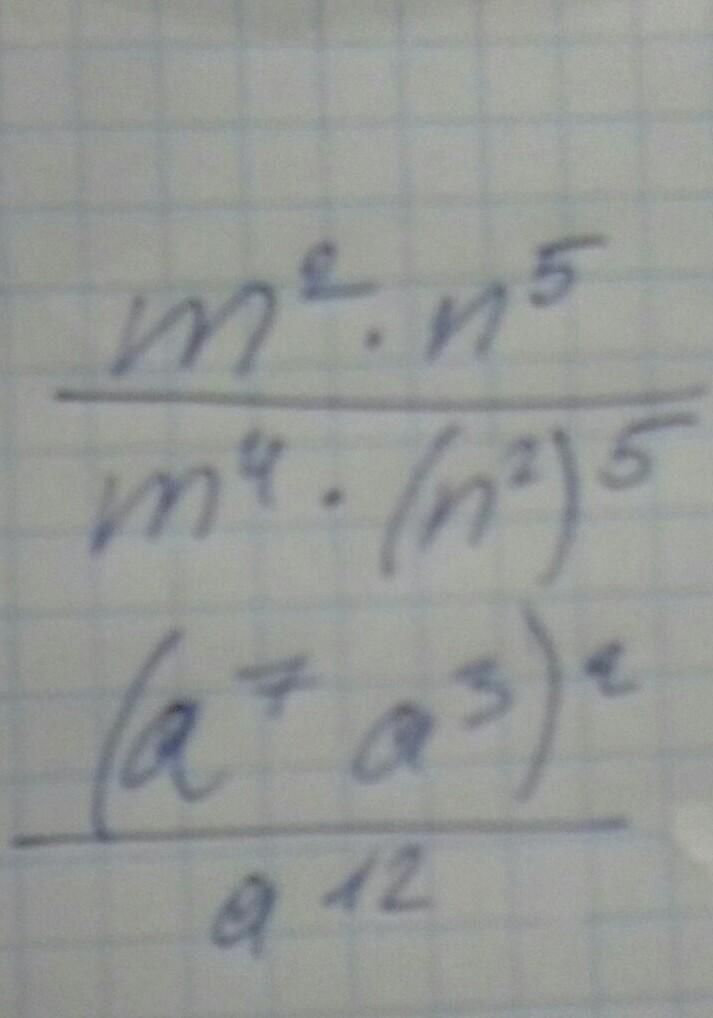 m² · n⁵
m⁴ · (n²)⁵
(a⁷ a³)²
a¹²